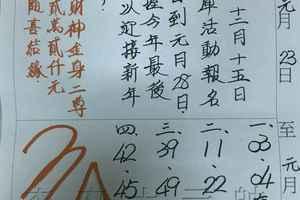 元月23日至元月
十二月十五日
庫活動報名
到元月28日
握今年最後
以迎接新年
財神金身二尊
貳萬貳仟元
隨喜結緣
一、03.04
二、11.22
三、39.49
四、42.45